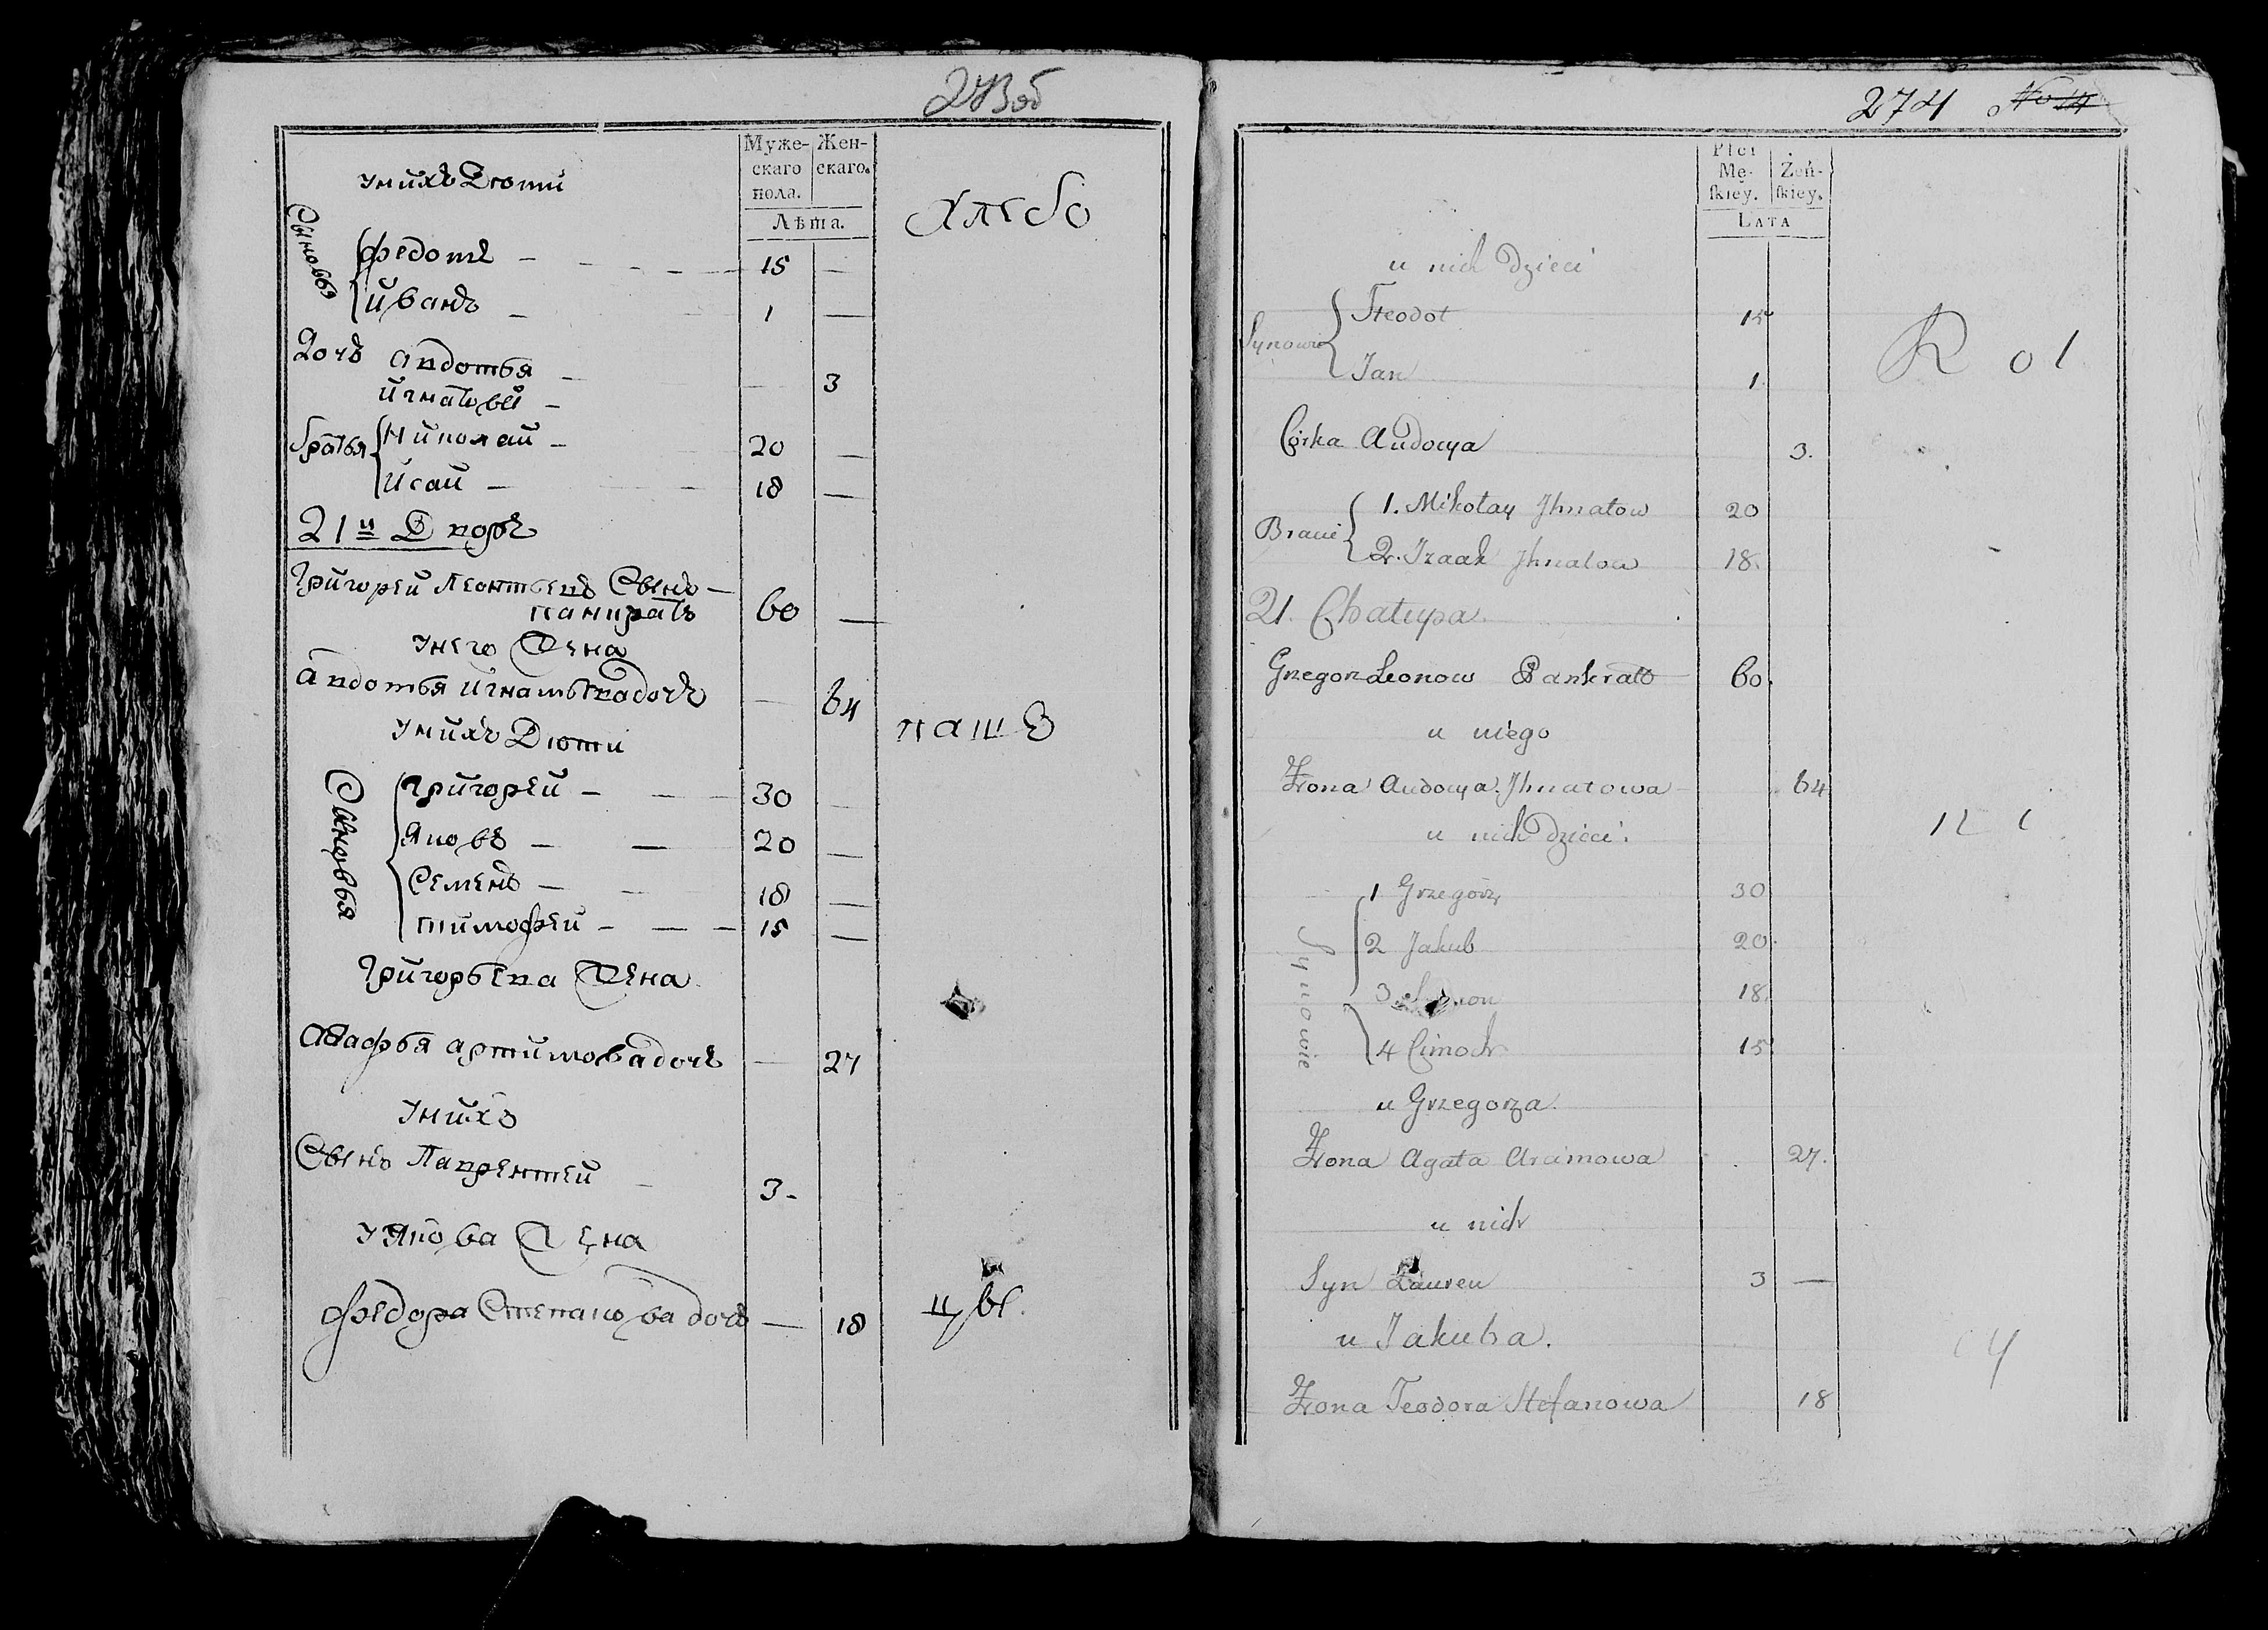 273об
Муже-
скаго
пола.
Жен-
скаго.
Лѣта.
унихъ Дѣти
хлебо
Сыновья
Федотъ — 15 —
Иванъ — 1 —
Дочь Авдотья — 3
Игнатовы —
братья
Николай — 20 —
Исай — 18 —
21й Дворъ
Григорей Леонтьевъ Сынъ —
панкратъ 60 —
унего Жена
Авдотья Игнатьевадочь — 64
унихъ Дѣти
паше
Сыновья
Григорей — 30 —
Яковъ — 20 —
Семенъ — 18 —
тимофей — 15 —
Григорьева Жена
Агафья артимовадочь — 27
унихъ
Сынъ Лаврентей 3 -
уЯкова Жена
Федора Степановадочь — 18
цы.
274 No 14
Płci
Mę-
ſkiey.
Żeń-
ſkiey.
LATA
u nich Dzieci
Synowie
Fteodot 15
Jan 1
R o l
Corka Audocya 3.
Bracia
1. Mikołay Jhnatow 20
2. Izaak Jhnatow 18.
21. Chałupa.
Grzegorz Leonow Pankrato 60.
u niego
Żona Audocya Jhnatowa 64
u nich Dzieci.
n i
Synowie
1 Grzegorz 30
2 Jakub 20.
3 Symon 18.
4 Cimoch 15.
u Grzegorza.
Żona Agata Aramowa 27.
u nich
Syn Lauren 3 —
u Jakuba.
cy
Żona Teodora Stefanowa 18